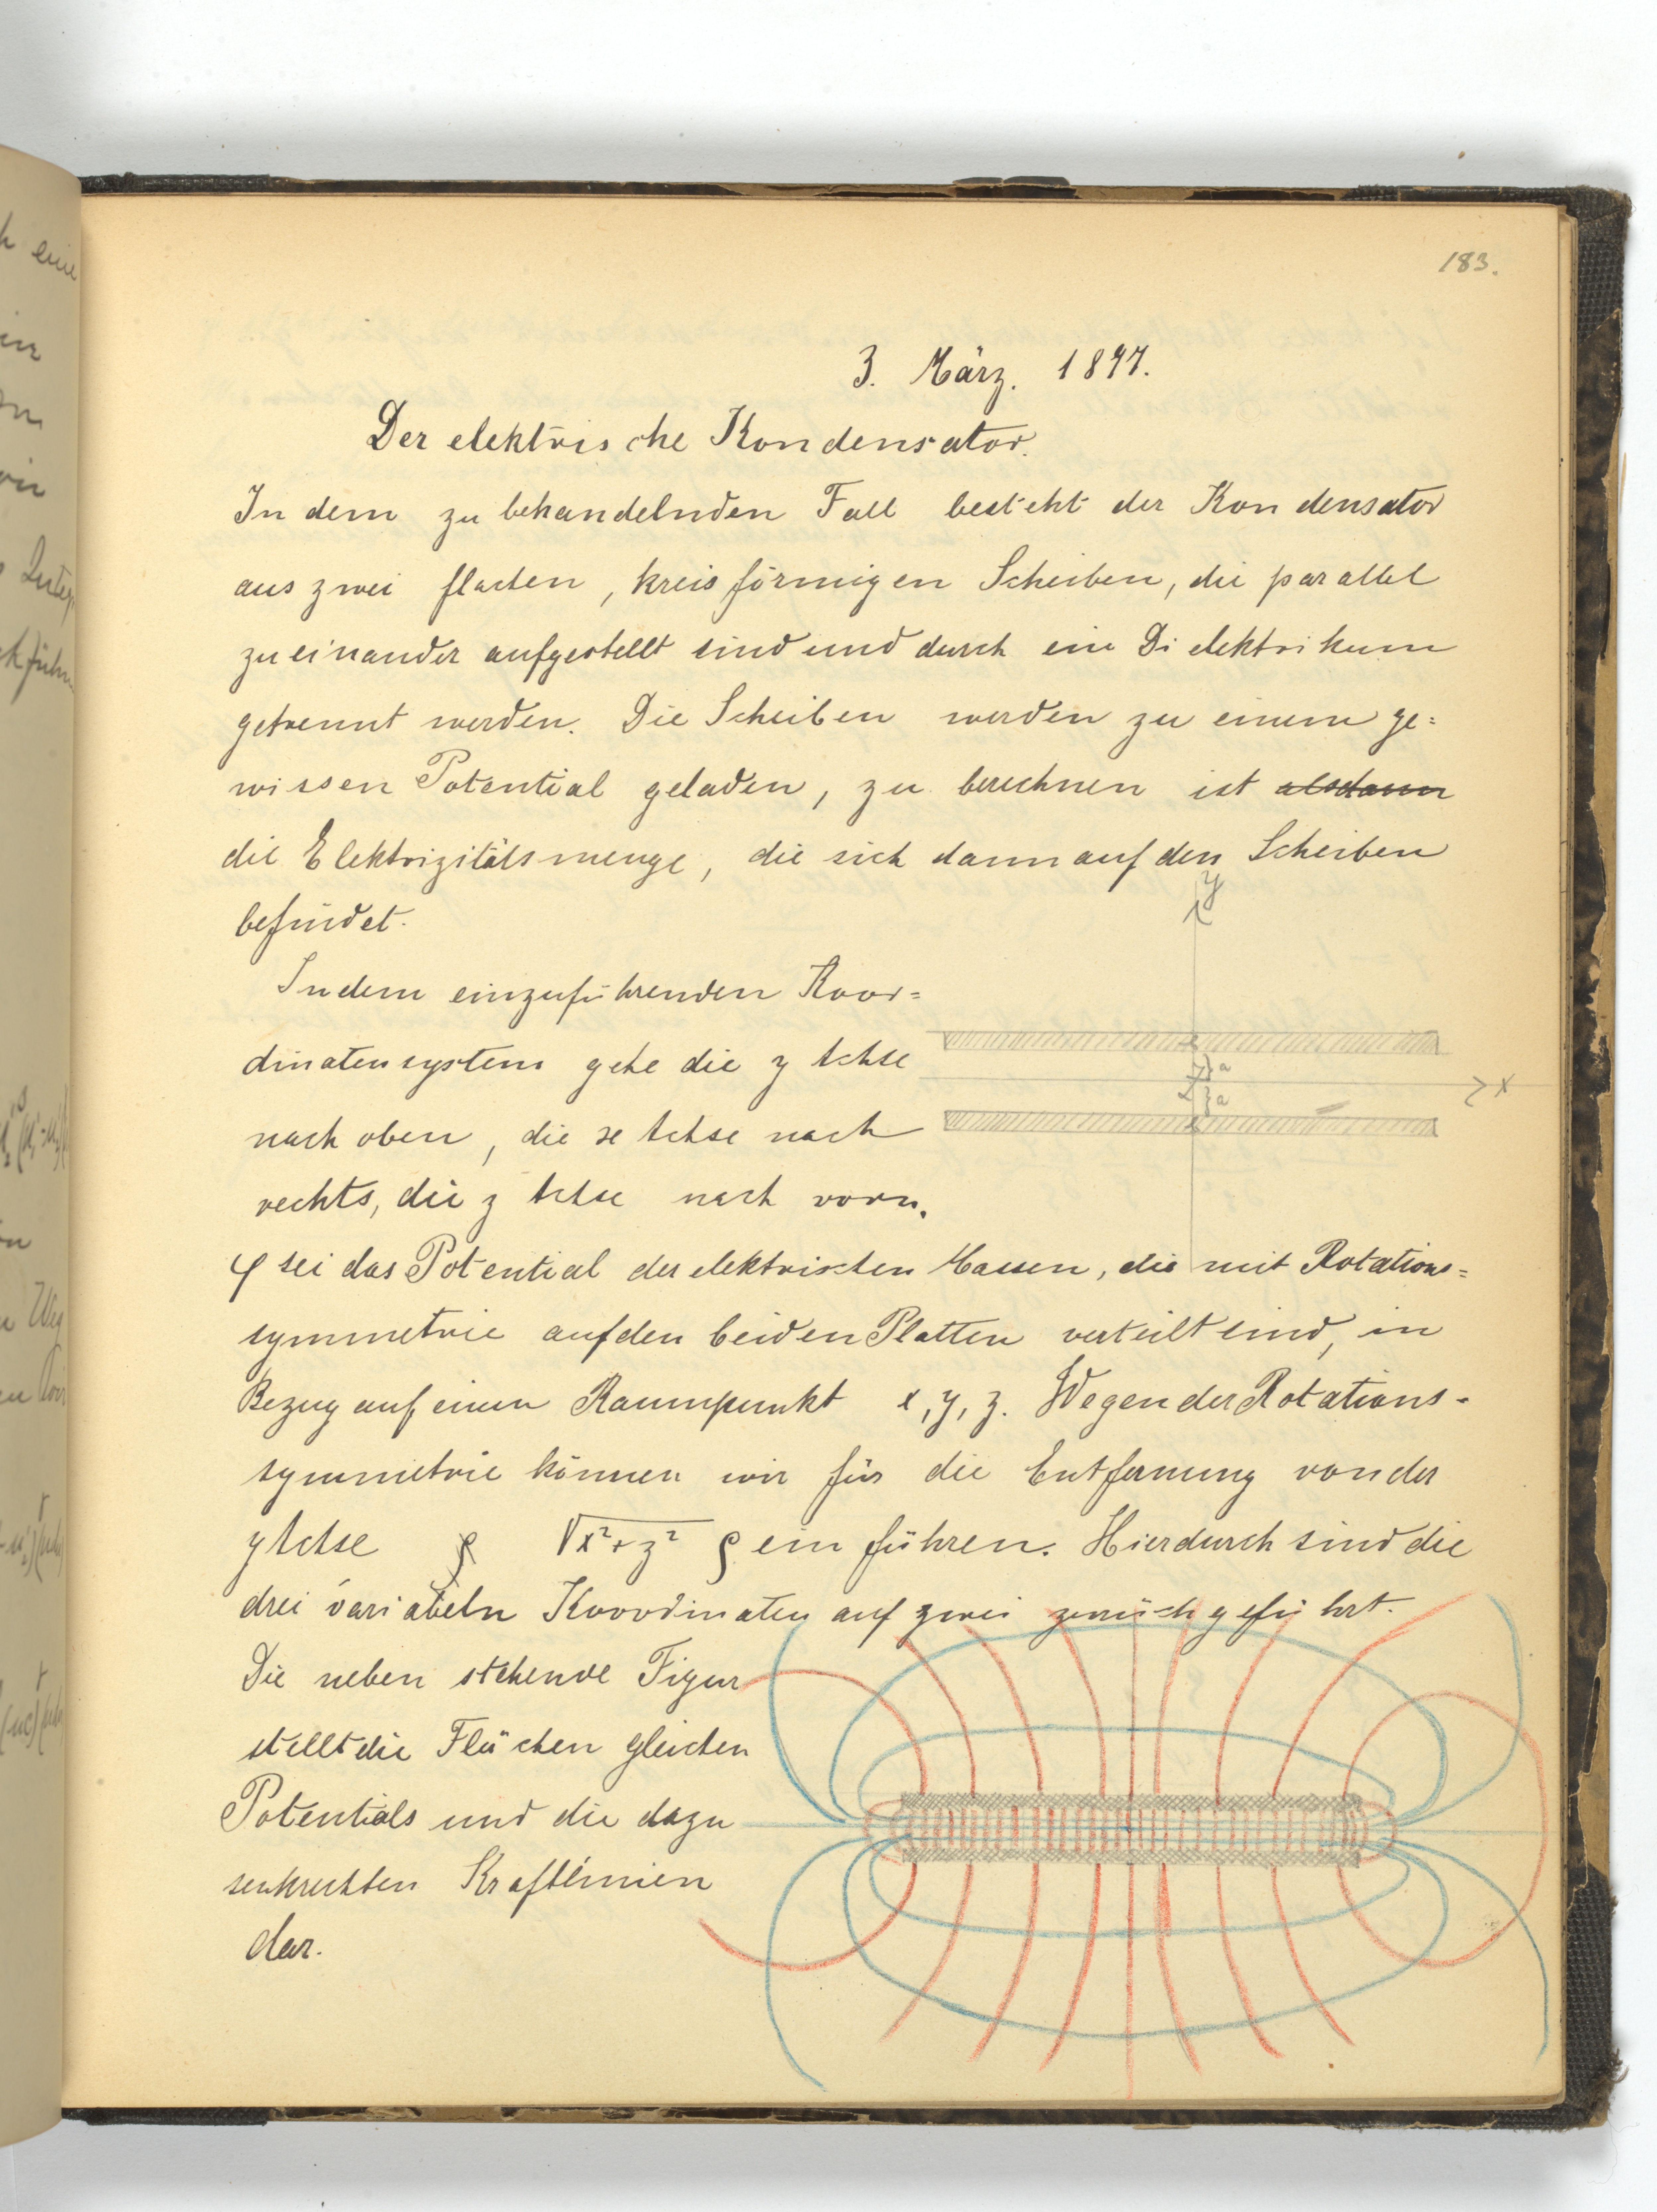 183.
3. März. 1897.
Der elektrische Kondensator.
In dem zu behandelnden Fall besteht der Kondensator
aus zwei flachen, kreisförmigen Scheiben, die parallel
zu einander aufgestellt sind und durch ein Dielektrikum
getrennt werden. Die Scheiben werden zu einem ge=
wissen Potential geladen, zu berechnen ist alsdann
die Elektrizitätsmenge, die sich dann auf den Scheiben
befindet.
y
In dem einzuführenden Koor=
dinatensystem gehe die y Achse
a
x
a
nach oben, die x Achse nach
rechts, die z Achse nach vorn.
φ sei das Potential der elektrischen Massen, die mit Rotations=
symmetrie auf den beiden Platten verteilt sind, in
Bezug auf einen Raumpunkt x, y, z. Wegen der Rotations-
symmetrie können wir für die Entfernung von der
y Achse ρ √x²+z² ρ einführen. Hierdurch sind die
drei variabeln Koordinaten auf zwei zurückgeführt.
Die nebenstehende Figur
stellt die Flächen gleichen
Potentials und die dazu
senkrechten Kraftlinien
dar.